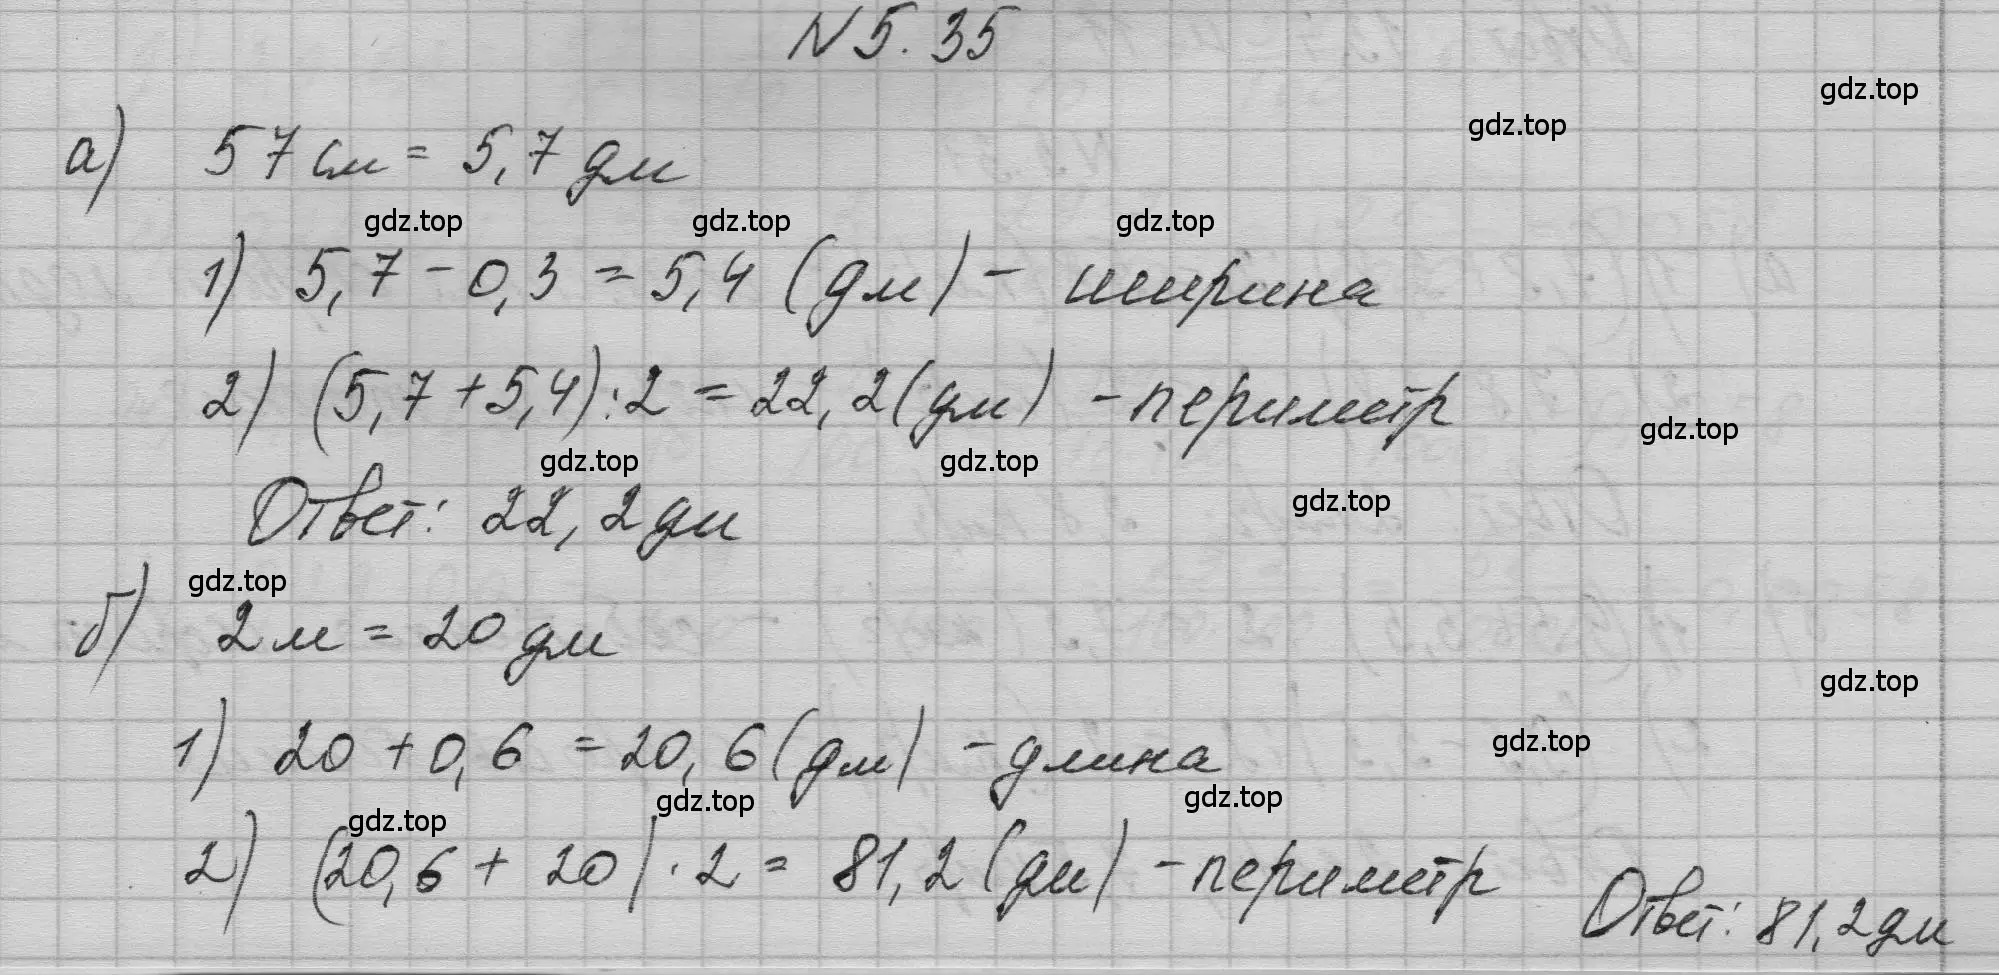 N 5.35
gdz.top
gdz.top
а) 57 см = 5,7 дм
gdz.top gdz.top gdz.top
1) 5,7 - 0,3 = 5,4 (дм) - ширина
2) (5,7 + 5,4) : 2 = 22,2 (дм) - периметр
gdz.top
gdz.top gdz.top
gdz.top
Ответ: 22,2 дм
gdz.top
б) 2 м = 20 дм
gdz.top
1) 20 + 0,6 = 20,6 (дм) - длина
gdz.top
gdz.top gdz.top gdz.top
2) (20,6 + 20) · 2 = 81,2 (дм) - периметр
Ответ: 81,2 дм